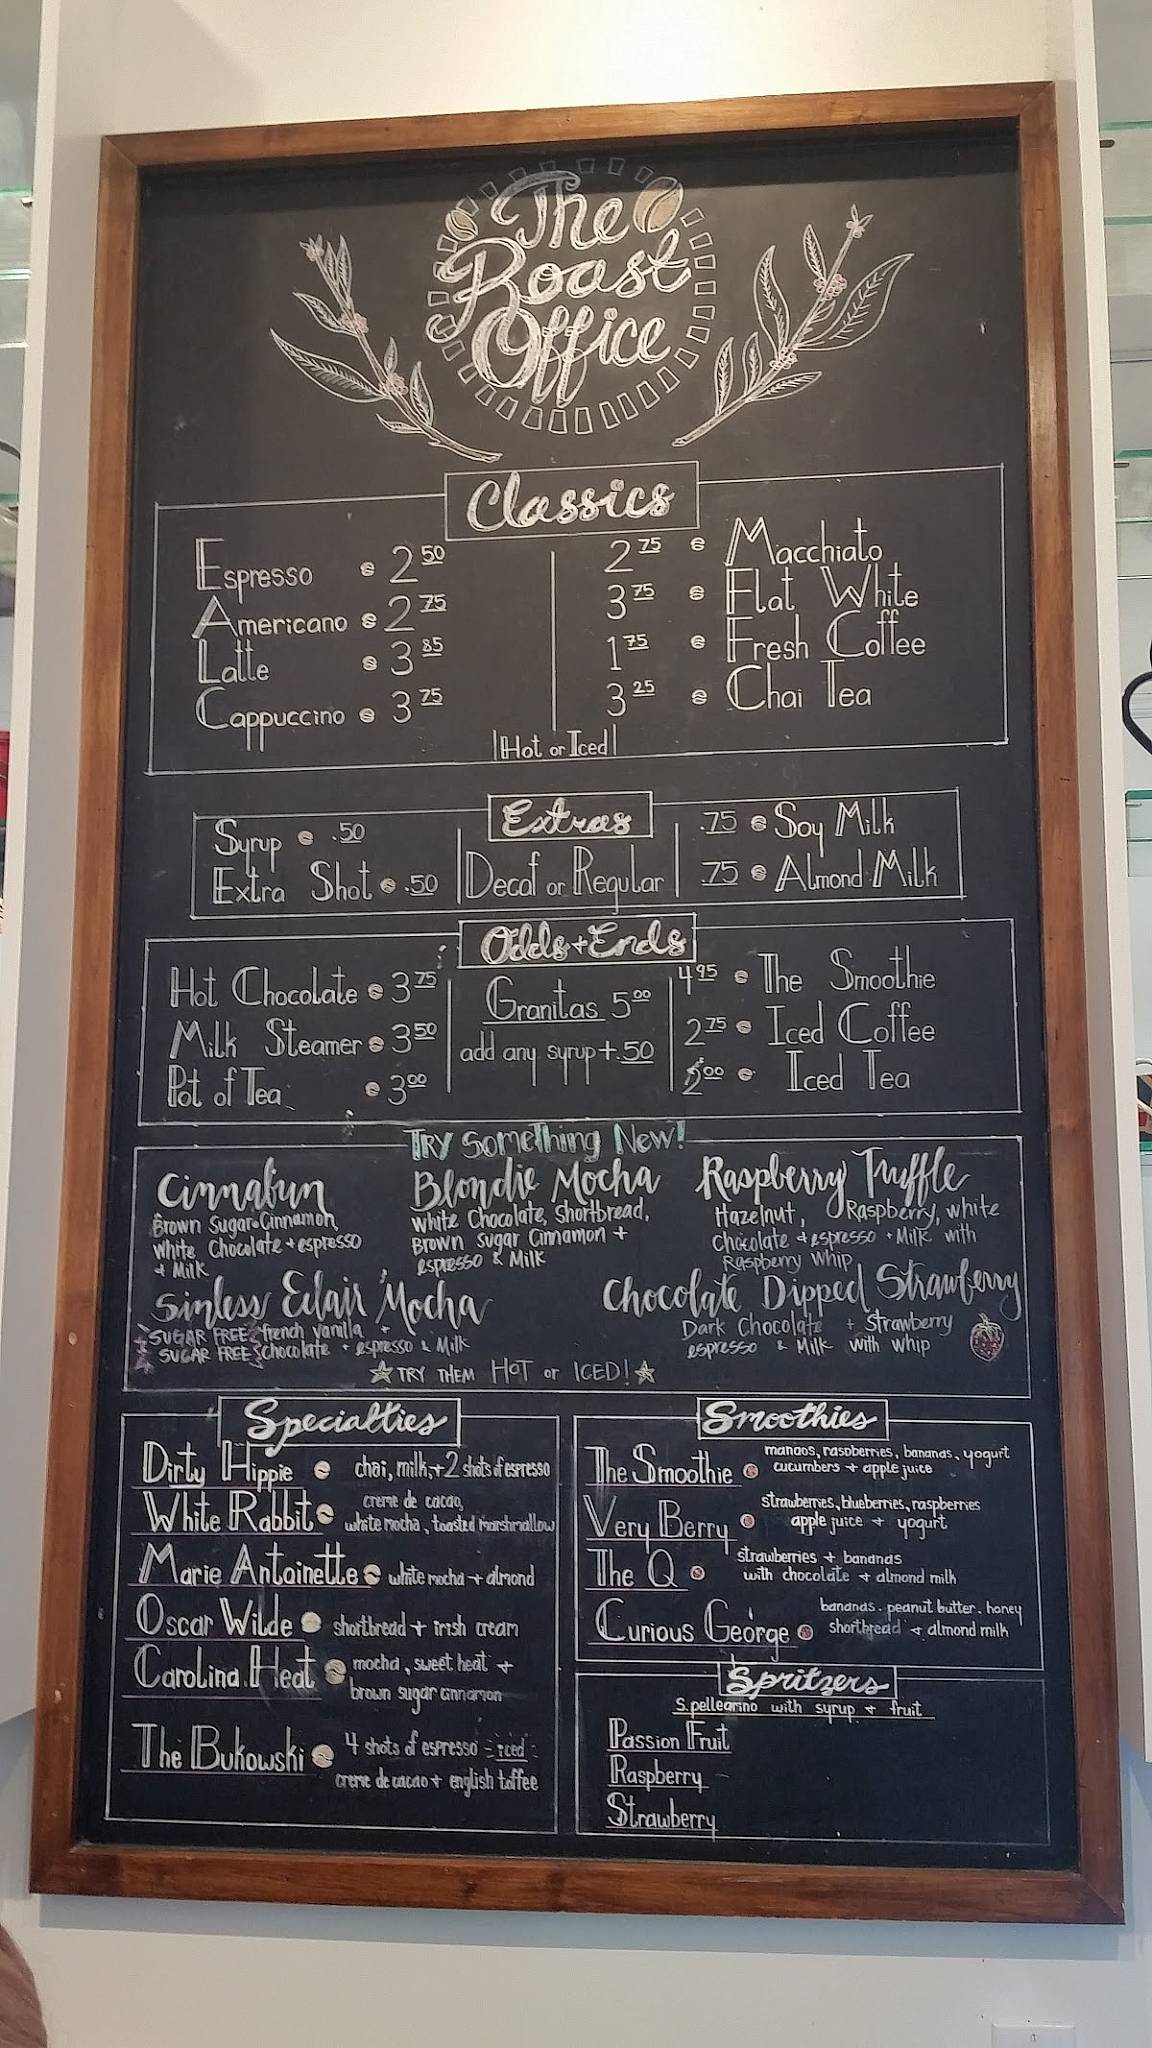 The
Roast
Office
Classics
Espresso 2 50
Americano 2 75
Latte 3 85
Cappuccino 3 75
2 75 Macchiato
3 75 Flat White
1 75 Fresh Coffee
3 25 Chai Tea
Hot or Iced
Extras
Syrup .50
Extra Shot .50
Decaf or Regular
.75 Soy Milk
.75 Almond Milk
Odds + Ends
Hot Chocolate 3 75
Milk Steamer 3 50
Pot of Tea 3 00
Granitas 5 00
add any syrup + .50
4 95 The Smoothie
2 75 Iced Coffee
2 00 Iced Tea
TRY Something New!
Cinnabun
Brown Sugar Cinnamon,
White Chocolate + espresso
+ Milk
Blondie Mocha
White Chocolate, Shortbread,
Brown Sugar Cinnamon +
espresso & Milk
Raspberry Truffle
Hazelnut, Raspberry, white
chocolate + espresso + Milk with
Raspberry Whip
Sinless Eclair Mocha
SUGAR FREE french vanilla +
SUGAR FREE chocolate + espresso & Milk
Chocolate Dipped Strawberry
Dark Chocolate + Strawberry
espresso & Milk with whip
TRY THEM HOT or ICED!
Specialties
Dirty Hippie chai, milk, + 2 shots of espresso
White Rabbit creme de cacao,
white mocha, toasted marshmallow
Marie Antoinette white mocha + almond
Oscar Wilde shortbread + irish cream
Carolina Heat mocha, sweet heat +
brown sugar cinnamon
The Bukowski 4 shots of espresso - iced -
creme de cacao + english toffee
Smoothies
The Smoothie mangos, raspberries, bananas, yogurt
cucumbers + apple juice
Very Berry strawberries, blueberries, raspberries
apple juice + yogurt
The Q strawberries + bananas
with chocolate + almond milk
Curious George bananas. peanut butter. honey
shortbread + almond milk
Spritzers
S.pellegrino with syrup + fruit
Passion Fruit
Raspberry
Strawberry